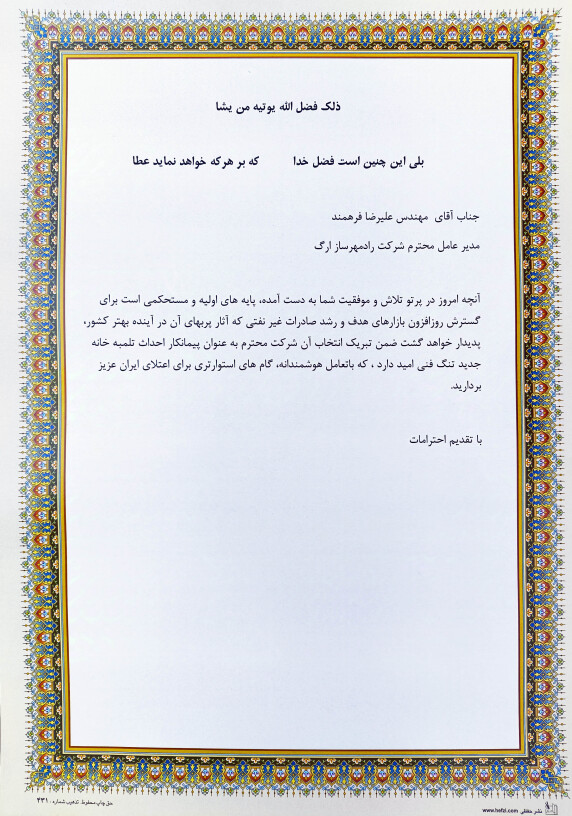 ذلک فضل الله یوتیه من یشا
بلی این چنین است فضل خدا که بر هرکه خواهد نماید عطا
جناب آقای مهندس علیرضا فرهمند
مدیر عامل محترم شرکت رادمهرساز ارگ
آنچه امروز در پرتو تلاش و موفقیت شما به دست آمده، پایه های اولیه و مستحکمی است برای
گسترش روزافزون بازارهای هدف و رشد صادرات غیر نفتی که آثار پربهای آن در آینده بهتر کشور،
پدیدار خواهد گشت ضمن تبریک انتخاب آن شرکت محترم به عنوان پیمانکار احداث تلمبه خانه
جدید تنگ فنی امید دارد ، که باتعامل هوشمندانه، گام های استوارتری برای اعتلای ایران عزیز
بردارید.
با تقدیم احترامات
نشر حافظی www.hefzi.com
حق چاپ محفوظ. تذهیب شماره ۴۳۱۰